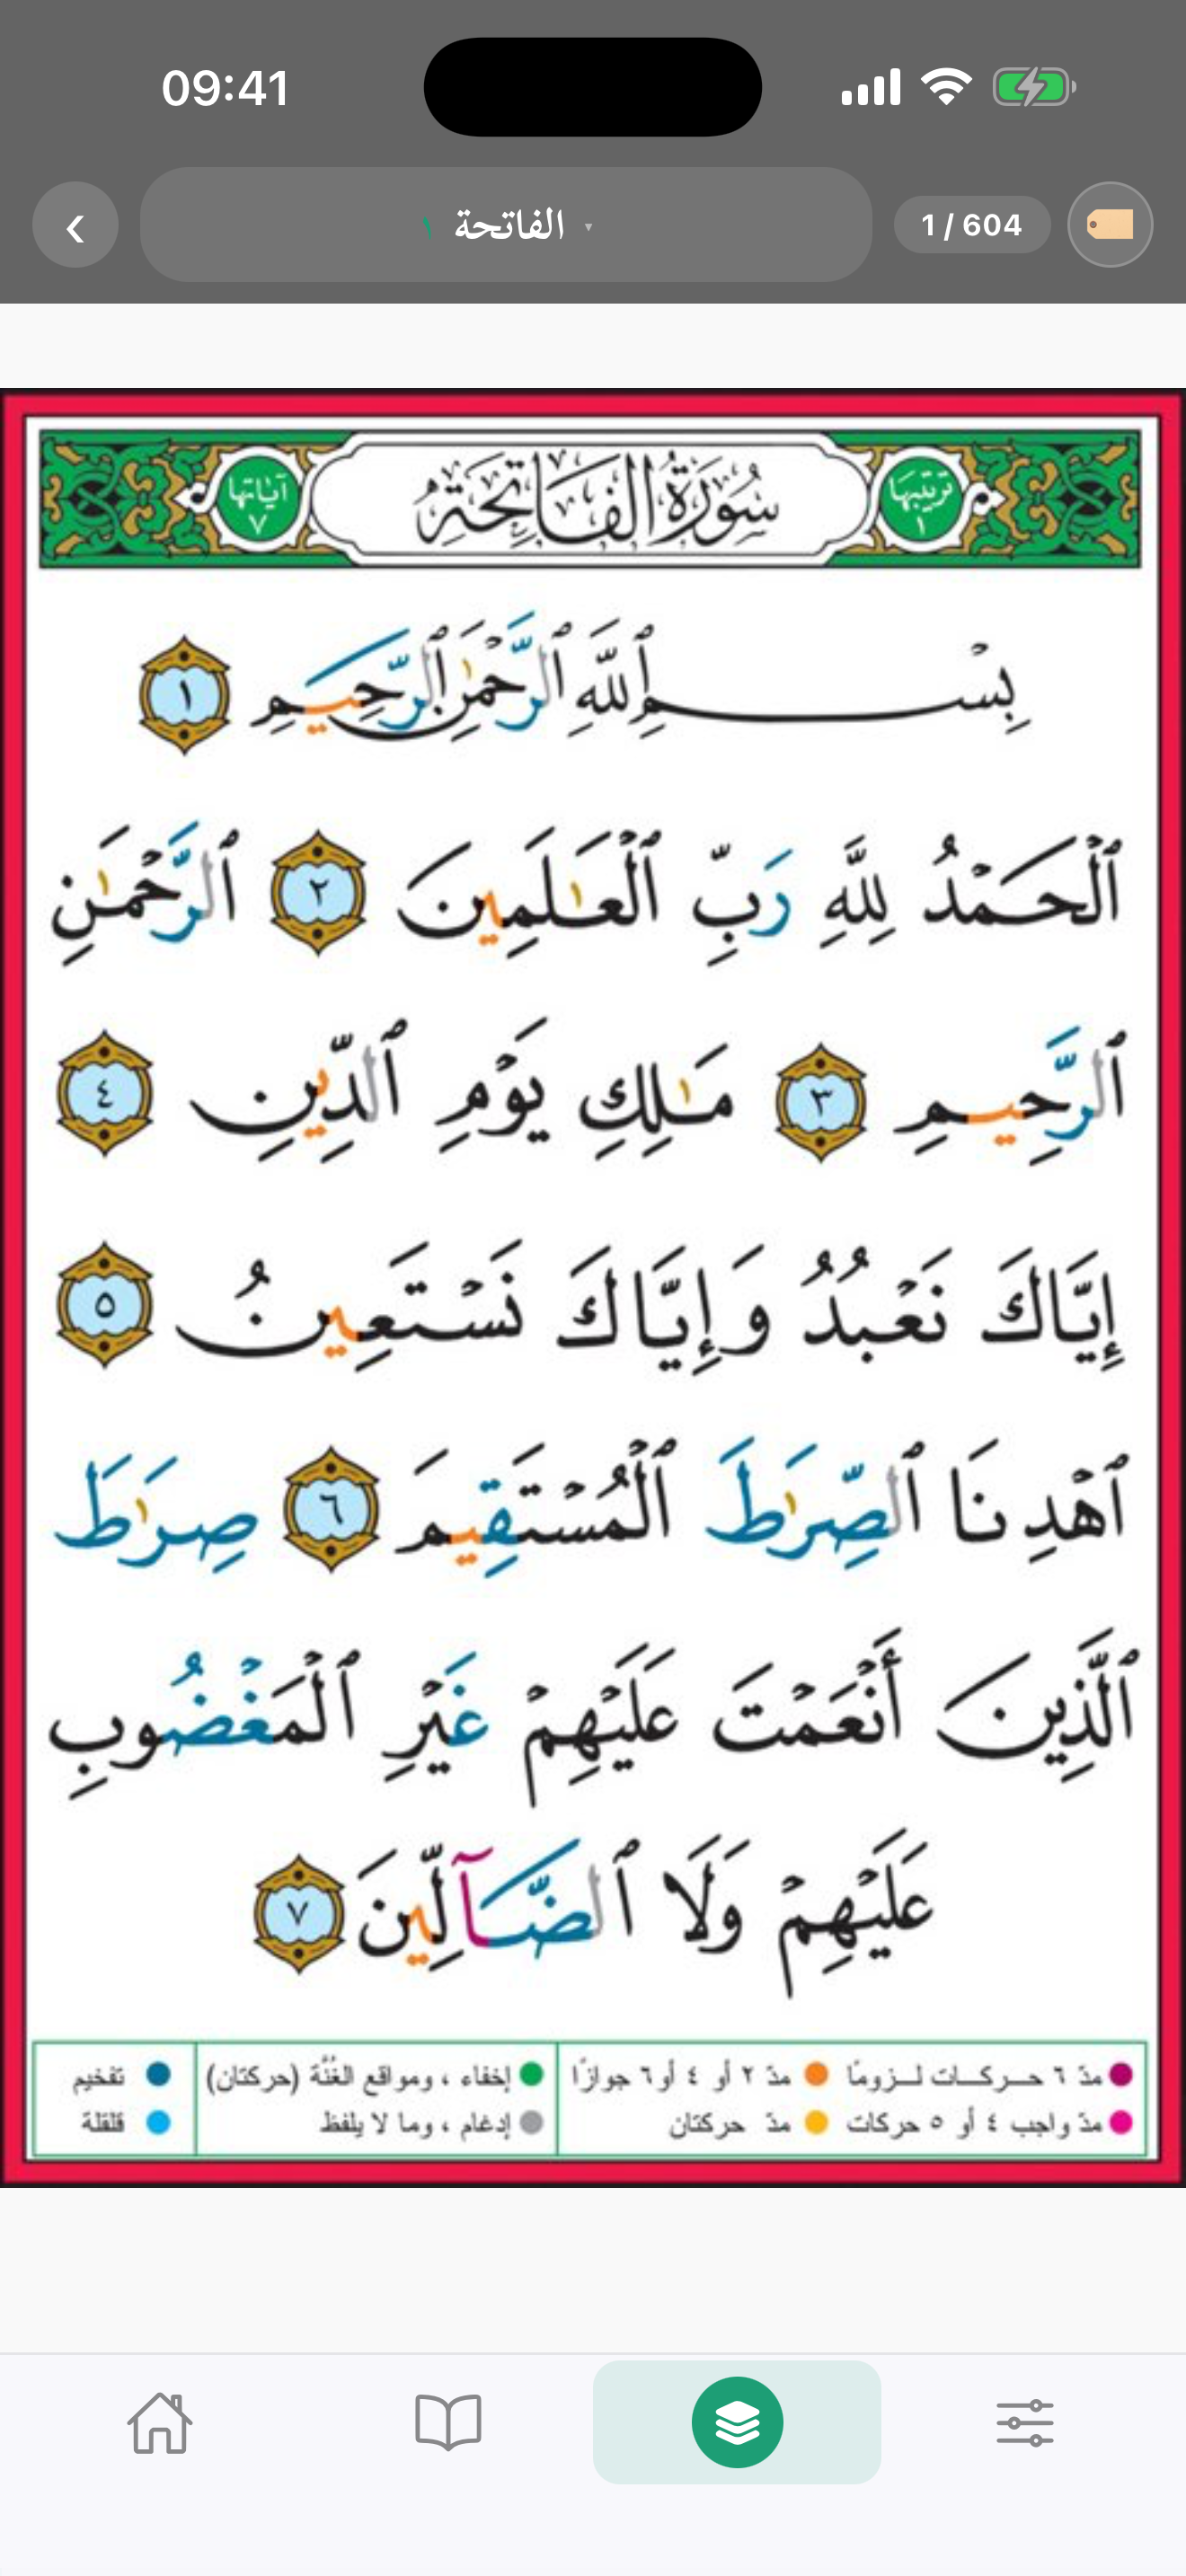 09:41
‹
الفاتحة ١
1 / 604
ترتيبها ١
سُورَةُ الفَاتِحَةِ
آياتها ٧
بِسْمِ ٱللَّهِ ٱلرَّحْمَٰنِ ٱلرَّحِيمِ ١
ٱلْحَمْدُ لِلَّهِ رَبِّ ٱلْعَٰلَمِينَ ٢ ٱلرَّحْمَٰنِ
ٱلرَّحِيمِ ٣ مَٰلِكِ يَوْمِ ٱلدِّينِ ٤
إِيَّاكَ نَعْبُدُ وَإِيَّاكَ نَسْتَعِينُ ٥
ٱهْدِنَا ٱلصِّرَٰطَ ٱلْمُسْتَقِيمَ ٦ صِرَٰطَ
ٱلَّذِينَ أَنْعَمْتَ عَلَيْهِمْ غَيْرِ ٱلْمَغْضُوبِ
عَلَيْهِمْ وَلَا ٱلضَّآلِّينَ ٧
مدّ ٦ حركات لزومًا
مدّ ٢ أو ٤ أو ٦ جوازًا
إخفاء ، ومواقع الغُنَّة (حركتان)
تفخيم
مدّ واجب ٤ أو ٥ حركات
مدّ حركتان
إدغام ، وما لا يلفظ
قلقلة